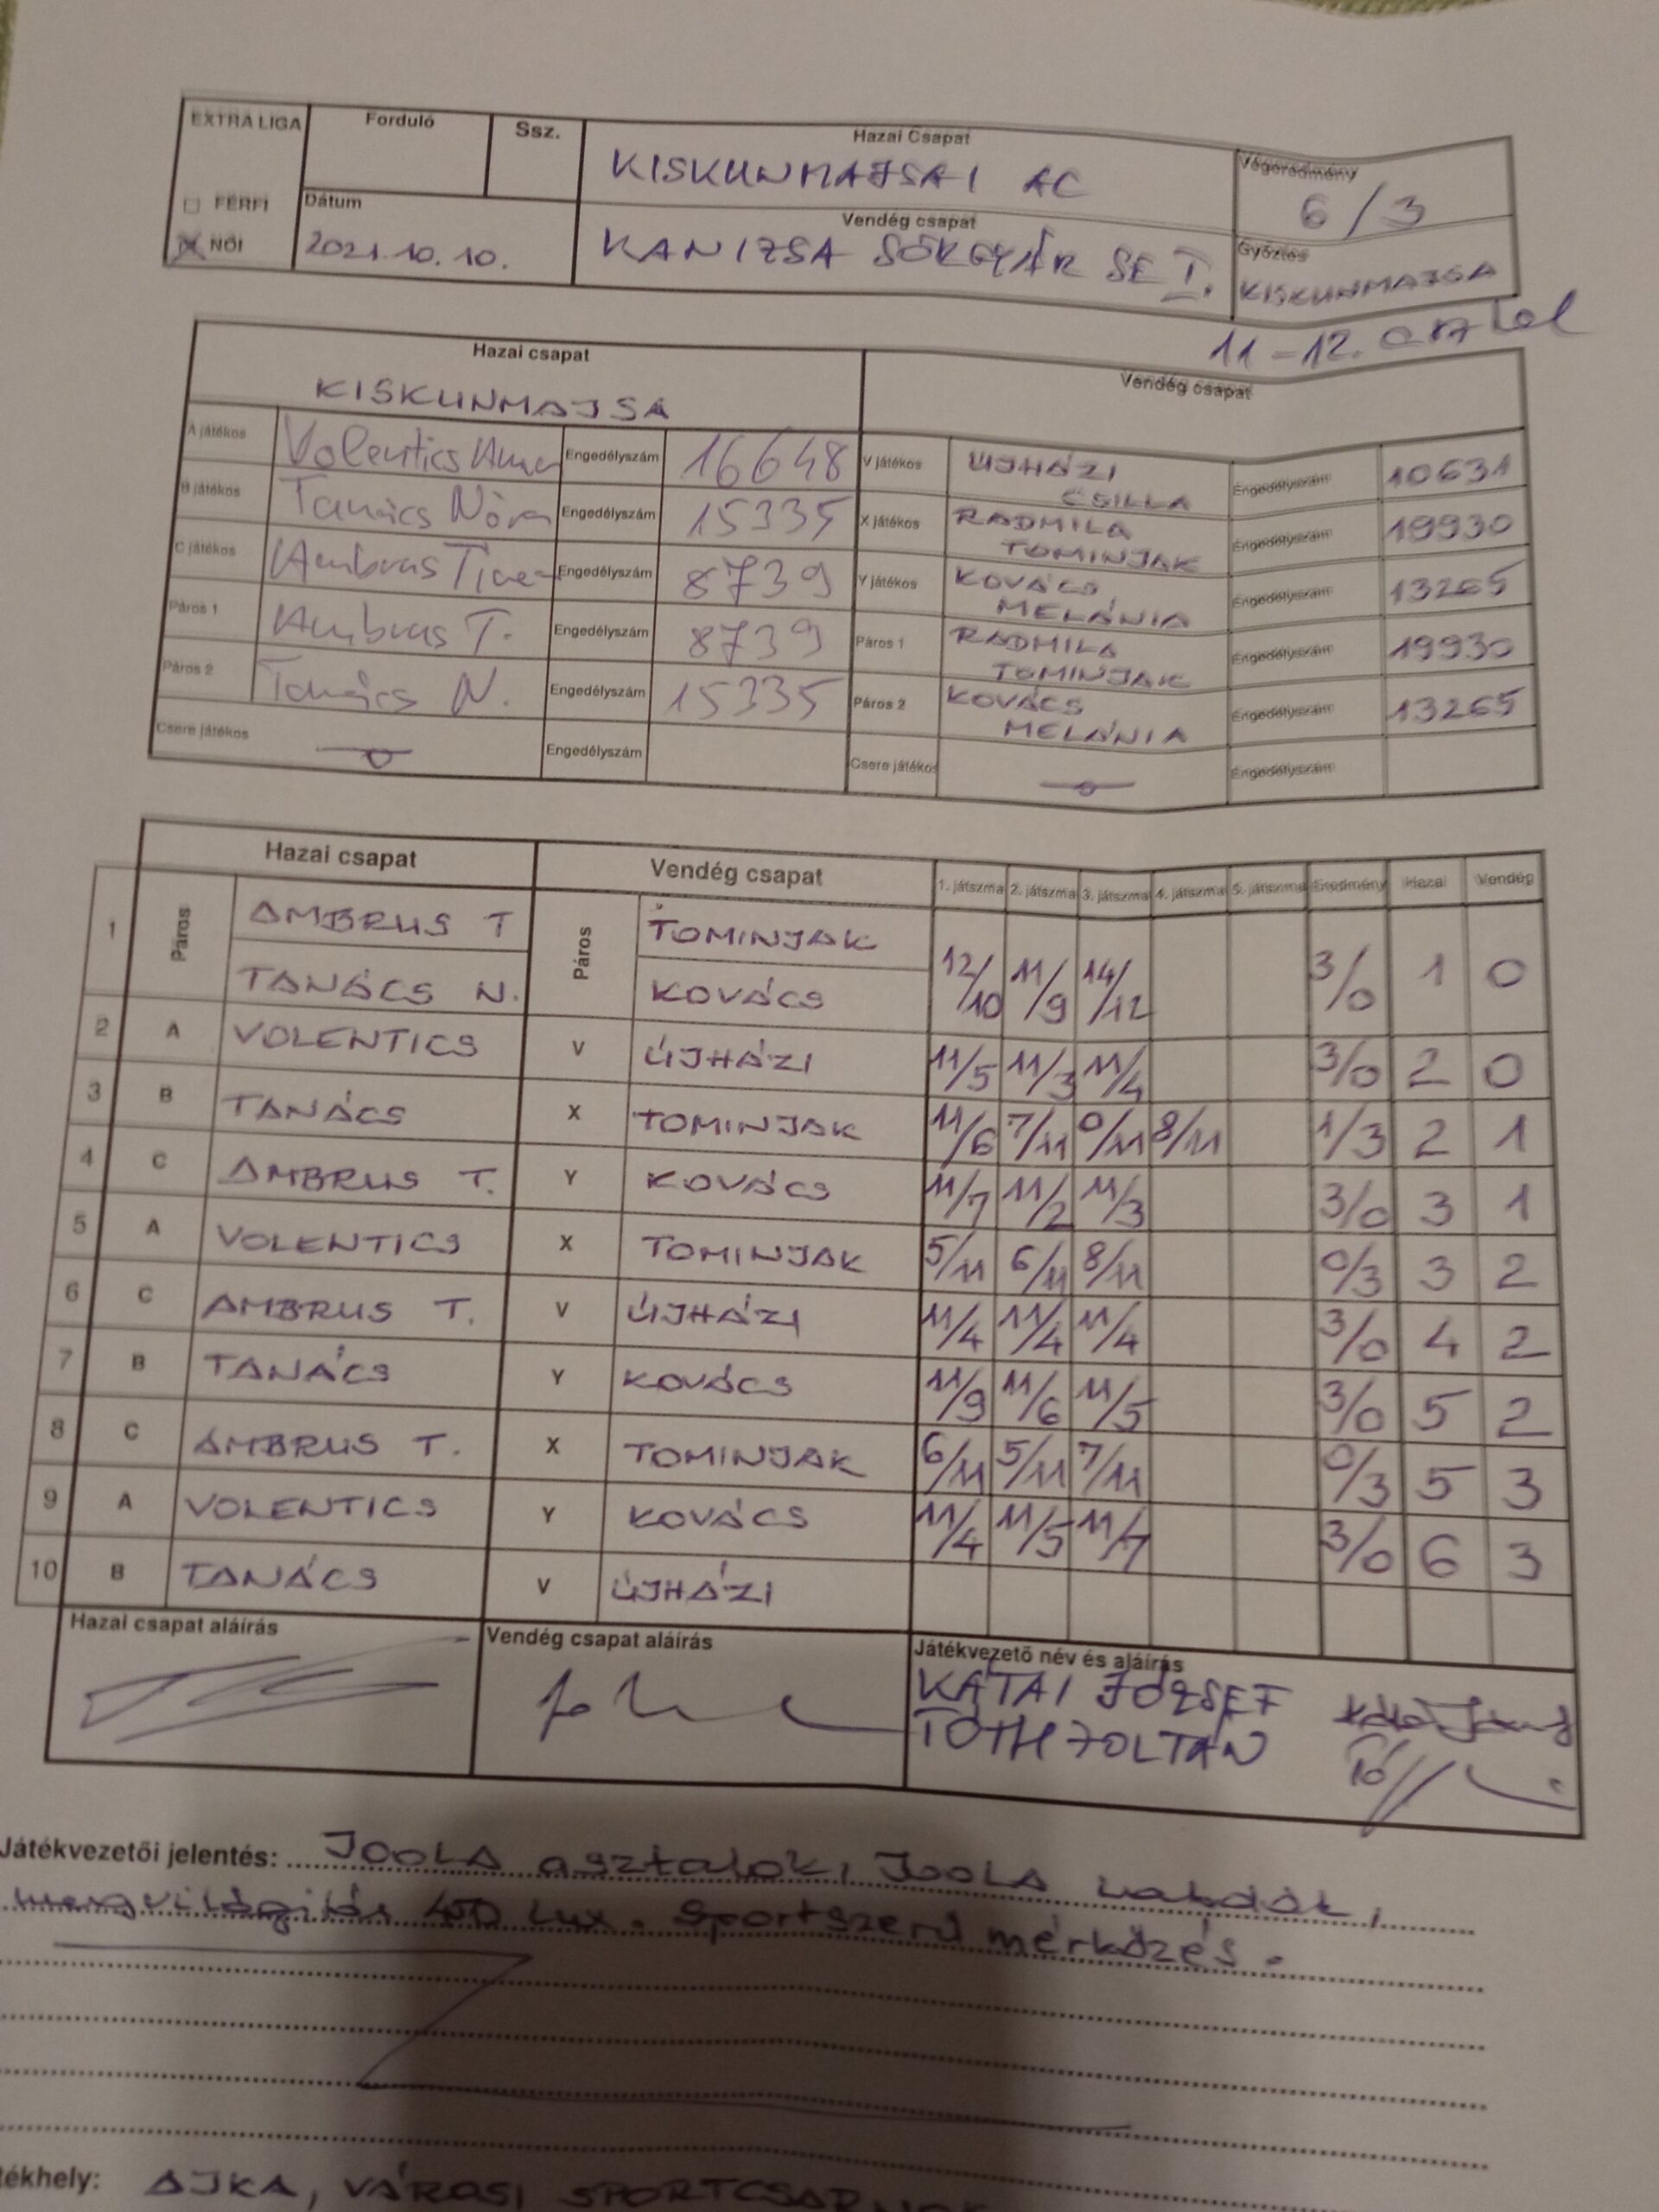 EXTRA LIGA Forduló Ssz. Hazai Csapat Végeredmény
KISKUNMAJSAI AC 6/3
□ FÉRFI Dátum Vendég csapat Győztes
☒ NŐI 2021.10.10. KANIZSA SÖRGYÁR SE I. KISKUNMAJSA
11-12. asztal
Hazai csapat Vendég csapat
KISKUNMAJSA
A játékos Volentics Anna Engedélyszám 16648 V játékos ÚJHÁZI CSILLA Engedélyszám 10631
B játékos Tanács Nóra Engedélyszám 15335 X játékos RADMILA TOMINJAK Engedélyszám 19930
C játékos Ambrus Engedélyszám 8739 Y játékos KOVÁCS MELÁNIA Engedélyszám 13265
Páros 1 Ambrus T. Engedélyszám 8739 Páros 1 RADMILA TOMINJAK Engedélyszám 19930
Páros 2 Tanács N. Engedélyszám 15335 Páros 2 KOVÁCS MELÁNIA Engedélyszám 13265
Csere játékos Engedélyszám Csere játékos Engedélyszám
Hazai csapat Vendég csapat 1. játszma 2. játszma 3. játszma 4. játszma 5. játszma Eredmény Hazai Vendég
1 Páros AMBRUS T Páros TOMINJAK
TANÁCS N. KOVÁCS 12/10 11/9 14/12 3/0 1 0
2 A VOLENTICS V ÚJHÁZI 11/5 11/3 11/4 3/0 2 0
3 B TANÁCS X TOMINJAK 11/6 7/11 0/11 8/11 1/3 2 1
4 C AMBRUS T. Y KOVÁCS 11/7 11/2 11/3 3/0 3 1
5 A VOLENTICS X TOMINJAK 5/11 6/11 8/11 0/3 3 2
6 C AMBRUS T. V ÚJHÁZI 11/4 11/4 11/4 3/0 4 2
7 B TANÁCS Y KOVÁCS 11/9 11/6 11/5 3/0 5 2
8 C AMBRUS T. X TOMINJAK 6/11 5/11 7/11 0/3 5 3
9 A VOLENTICS Y KOVÁCS 11/4 11/5 11/7 3/0 6 3
10 B TANÁCS V ÚJHÁZI
Hazai csapat aláírás Vendég csapat aláírás Játékvezető név és aláírás
KÁTAI JÓZSEF
TÓTH ZOLTÁN
Játékvezetői jelentés: JOOLA asztalok, JOOLA labdák,
megvilágítás 450 Lux. Sportszerű mérkőzés.
tékhely: AJKA, VÁROSI SPORTCSARNOK